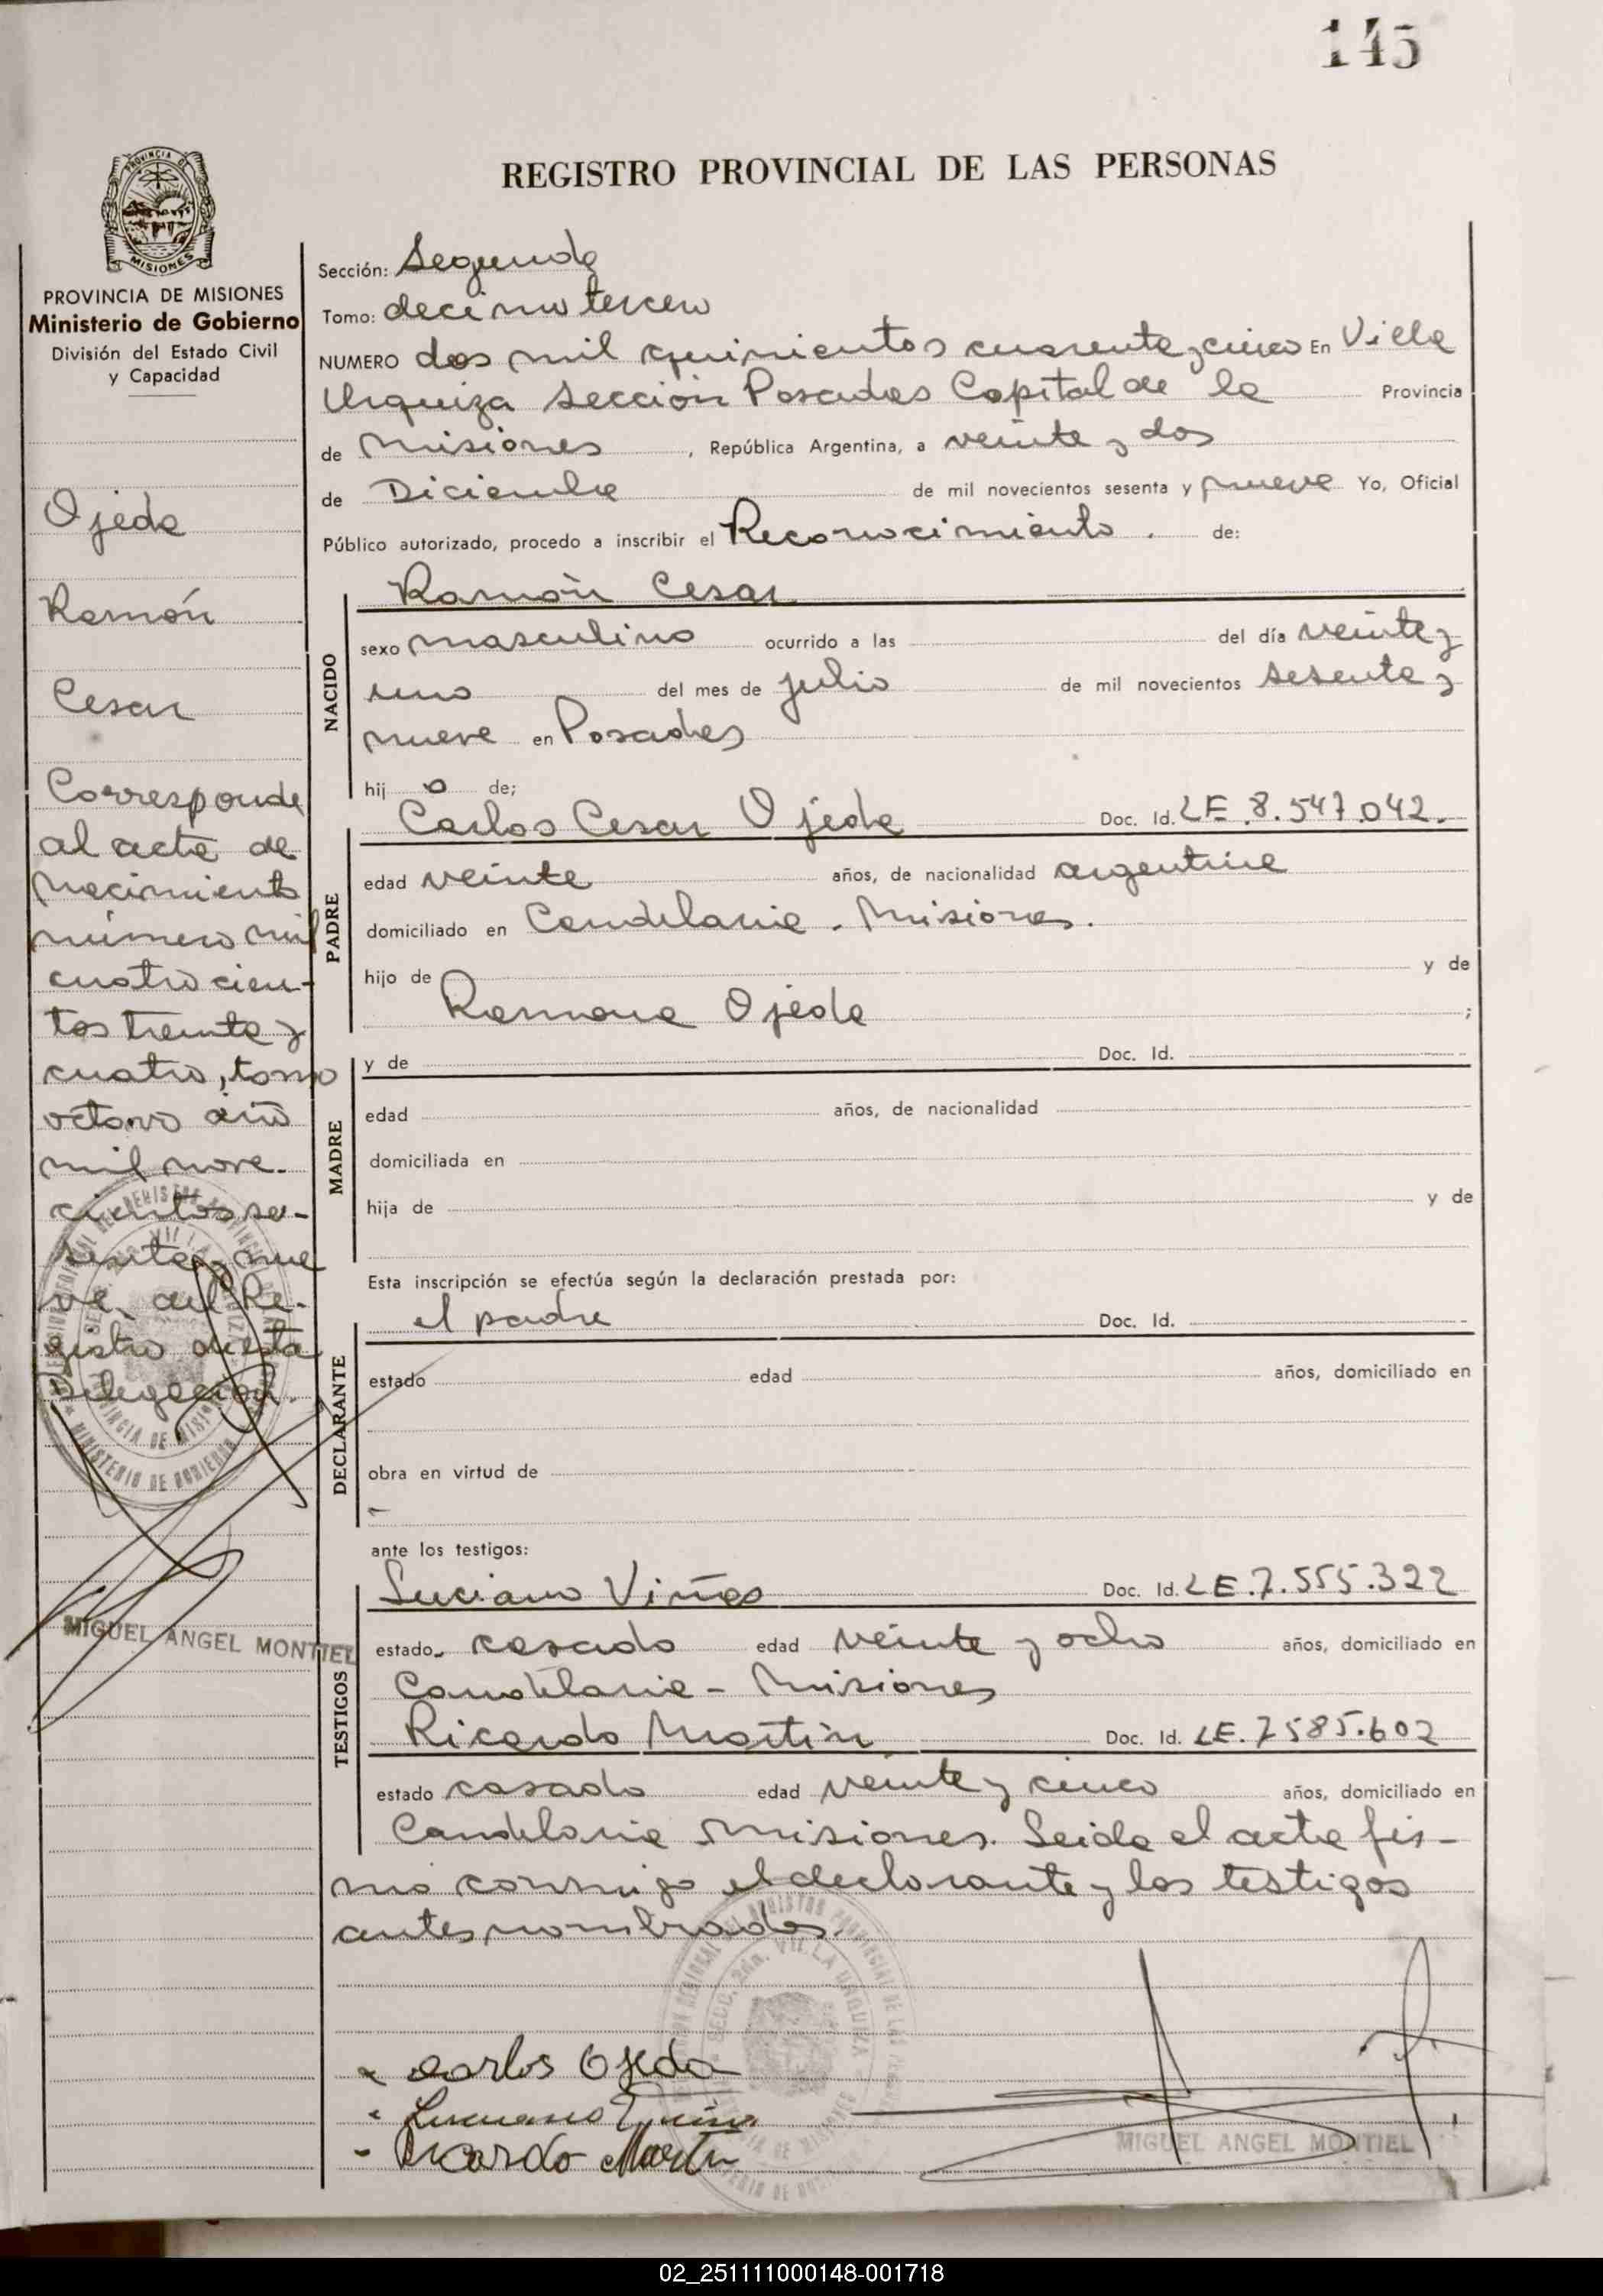 145
REGISTRO PROVINCIAL DE LAS PERSONAS
PROVINCIA DE MISIONES
MISIONES
PROVINCIA DE MISIONES
Ministerio de Gobierno
División del Estado Civil
y Capacidad
Ojeda
Ramón
Cesar
Corresponde
al acta de
nacimiento
número mil
cuatrocien-
tos treinta y
cuatro, tomo
octavo año
mil nove-
cientos se-
senta y nue
ve, del Re-
gistro de esta
Delegación.
MIGUEL ANGEL MONTIEL
Sección: Segunda
Tomo: decimo tercero
NUMERO dos mil quinientos cuarenta y cinco En Villa
Urquiza Sección Posadas Capital de la Provincia
de Misiones, República Argentina, a veinte y dos
de Diciembre de mil novecientos sesenta y nueve Yo, Oficial
Público autorizado, procedo a inscribir el Reconocimiento. de:
NACIDO
Ramón Cesar
sexo masculino ocurrido a las del día veinte y
uno del mes de julio de mil novecientos sesenta y
nueve en Posadas
hij o de;
PADRE
Carlos Cesar Ojeda Doc. Id. LE.8.547.042.
edad veinte años, de nacionalidad argentina
domiciliado en Candelaria - Misiones.
hijo de y de
Ramona Ojeda ;
MADRE
y de Doc. Id.
edad años, de nacionalidad
domiciliada en
hija de y de
Esta inscripción se efectúa según la declaración prestada por:
DECLARANTE
el padre Doc. Id.
estado edad años, domiciliado en
obra en virtud de
ante los testigos:
TESTIGOS
Luciano Viñas Doc. Id. LE.7.555.322
estado casado edad veinte y ocho años, domiciliado en
Candelaria - Misiones
Ricardo Martin Doc. Id. LE.7585.602
estado casado edad veinte y cinco años, domiciliado en
Candelaria Misiones. Leida el acta fir-
mó conmigo el declarante y los testigos
antes nombrados.
Carlos Ojeda
Ricardo Martin
MIGUEL ANGEL MONTIEL
02_251111000148-001718